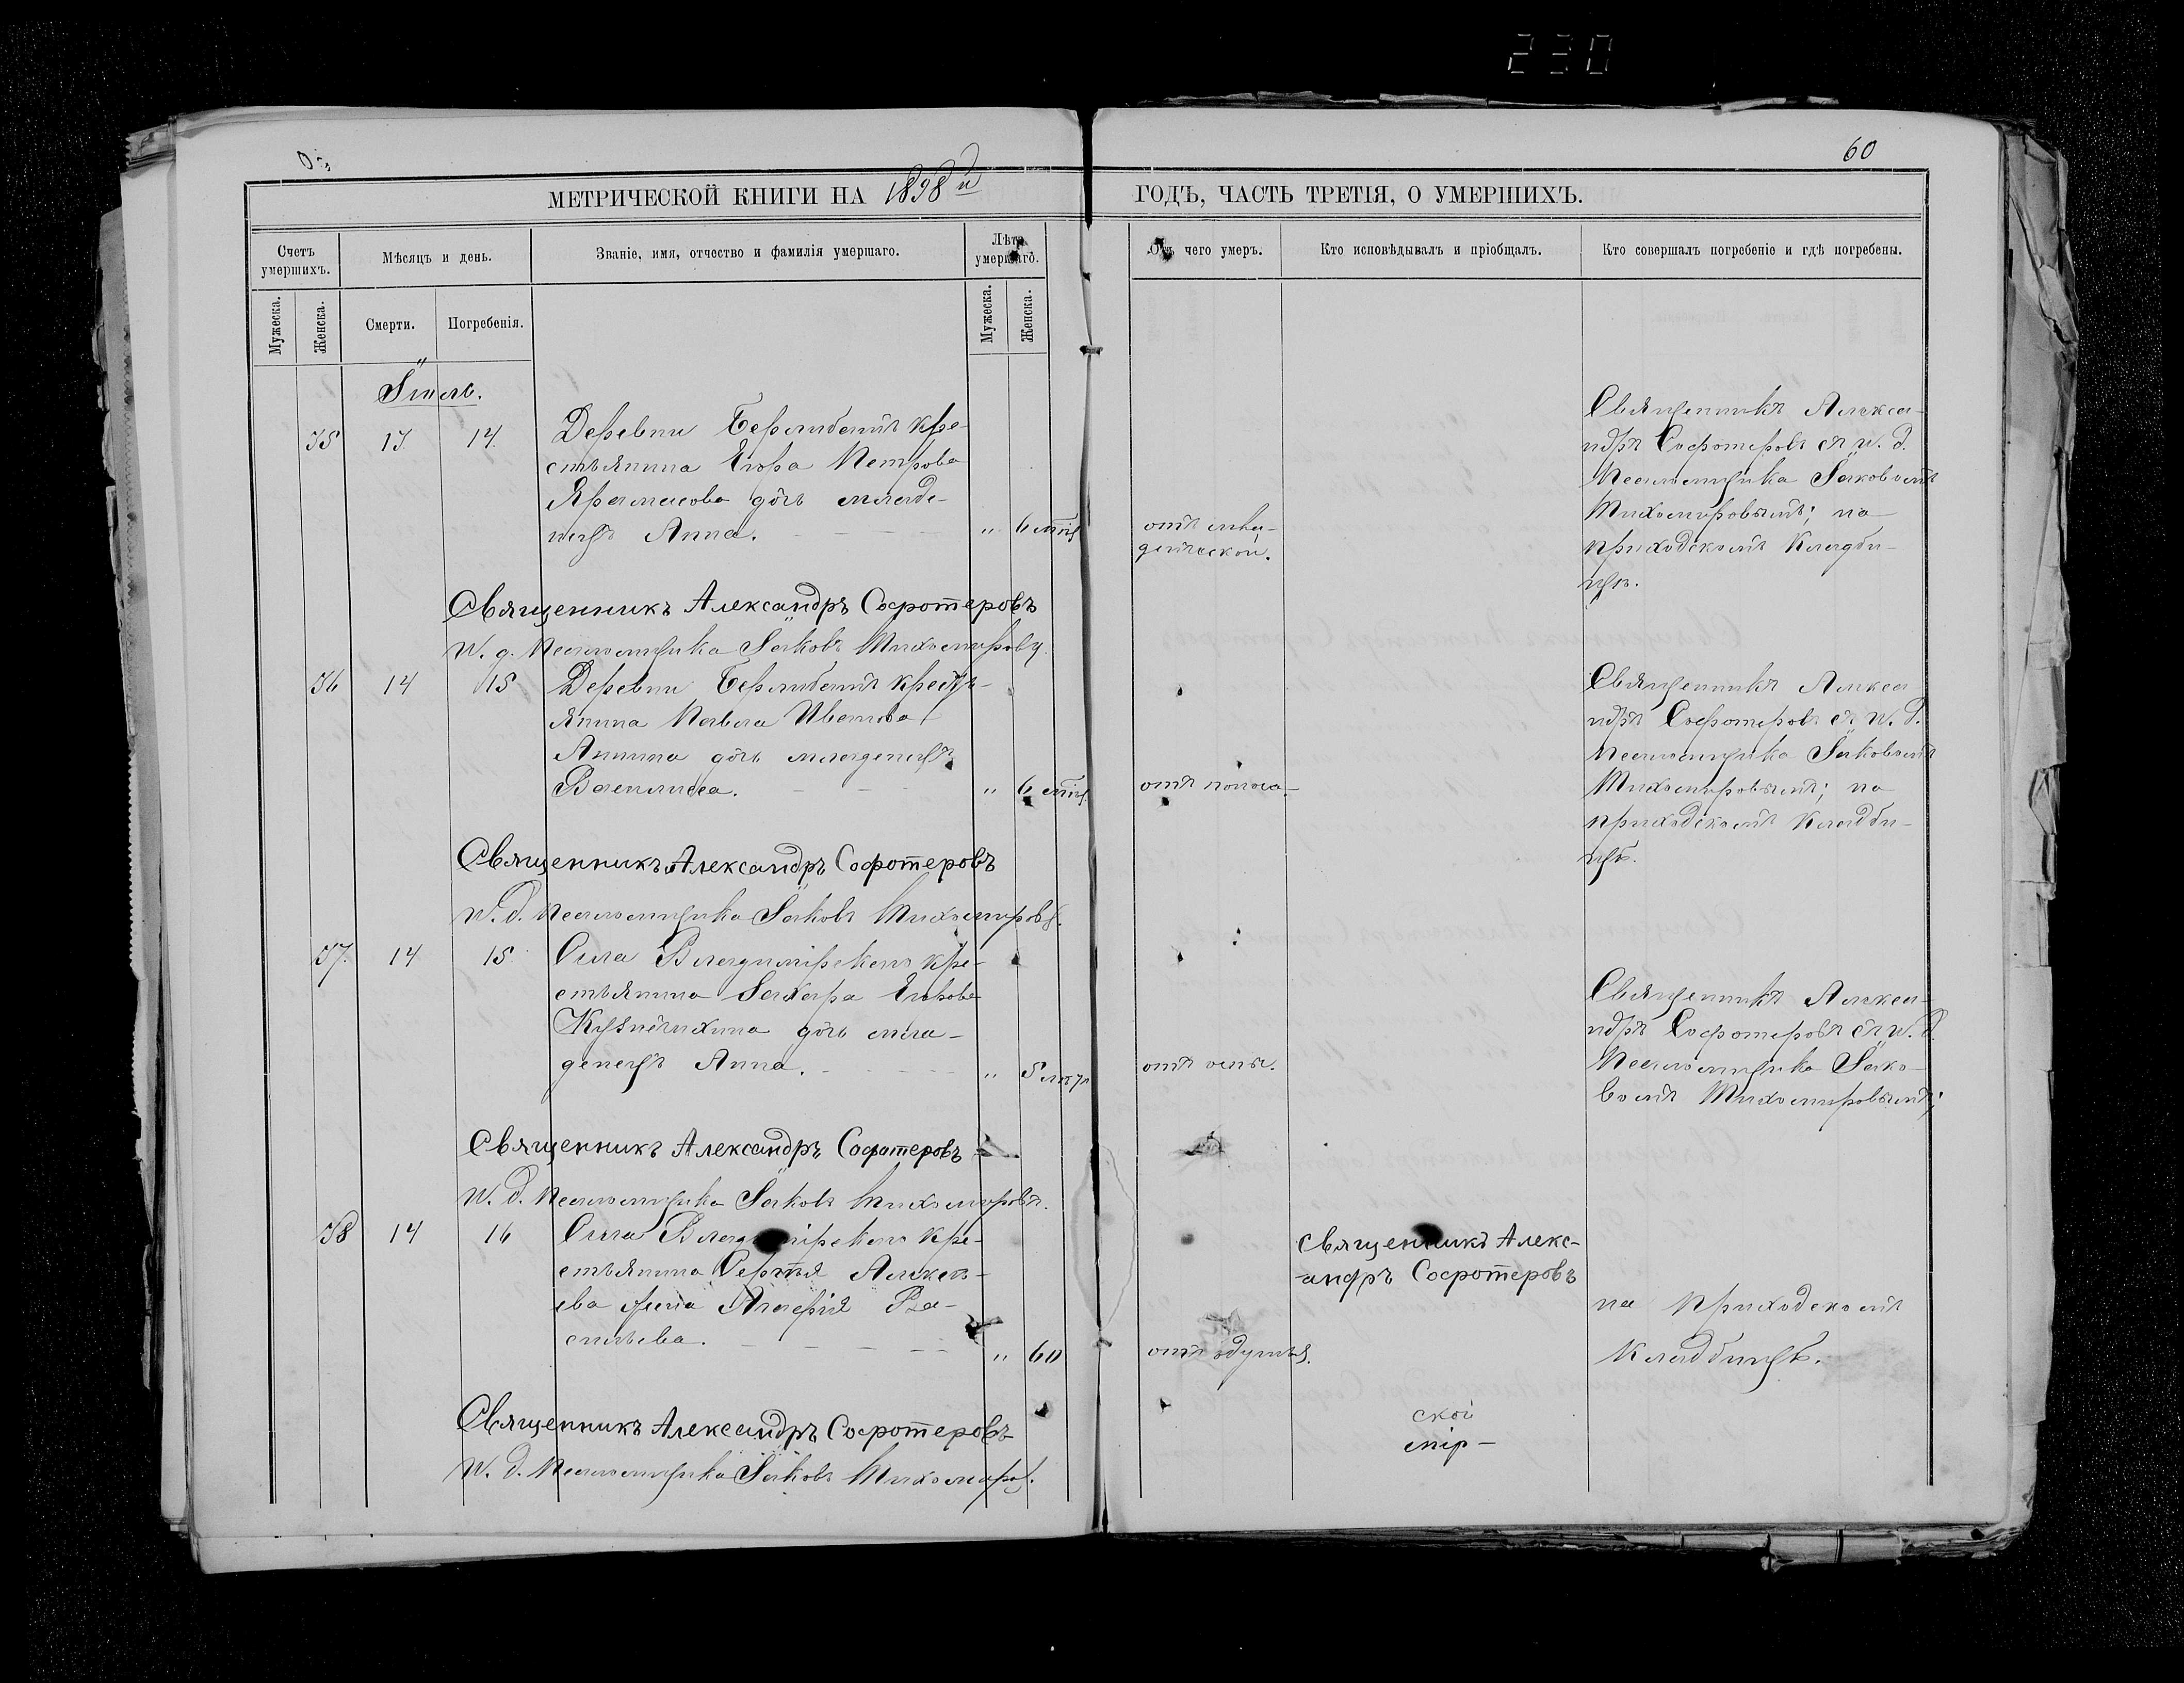 230
60
МЕТРИЧЕСКОЙ КНИГИ НА 1898й ГОДЪ, ЧАСТЬ ТРЕТІЯ, О УМЕРШИХЪ.
Счетъ умершихъ.
Мѣсяцъ и день.
Званіе, имя, отчество и фамилія умершаго.
Лѣта умершаго.
Отъ чего умеръ.
Кто исповѣдывалъ и пріобщалъ.
Кто совершалъ погребеніе и гдѣ погребены.
Мужеска.
Женска.
Смерти.
Погребенія.
Мужеска.
Женска.
Іюль.
35 13 14
Деревни кре-
стьянина Егора Петрова
дочь младе-
нецъ Анна. " 6 мѣс
отъ мла-
денческой.
Священникъ Алекса-
ндръ Софотеровъ съ и. д.
Псаломщика Іаковомъ
Тихомировымъ; на
приходскомъ кладби-
щѣ.
Священникъ Александръ Софотеровъ
И. д. Псаломщика Іаковъ Тихомировъ.
36 14 15
Деревни кресть-
янина Павла Иванова
дочь младенецъ
Василисса. " 6 мѣс
отъ поноса.
Священникъ Алекса
ндръ Софотеровъ съ и. д.
Псаломщика Іаковомъ
Тихомировымъ; на
приходскомъ кладби-
щѣ.
Священникъ Александръ Софотеровъ
И. д. Псаломщика Іаковъ Тихомировъ.
37. 14 15
Села Владимірскаго кре-
стьянина Захара
дочь мла-
денецъ Анна. " 5 лѣтъ
отъ оспы.
Священникъ Алекса-
ндръ Софотеровъ съ и. д.
Псаломщика Іако-
вомъ Тихомировымъ;
Священникъ Александръ Софотеровъ
И. д. Псаломщика Іаковъ Тихомировъ.
38 14 16
Села Владимірскаго кре-
стьянина Сергѣя Алексѣ-
ева жена Ва-
сильева. " 60
отъ
Священникъ Алекс-
андръ Софотеровъ
на приходскомъ
кладбищѣ.
Священникъ Александръ Софотеровъ
И. д. Псаломщика Іаковъ Тихомиров.